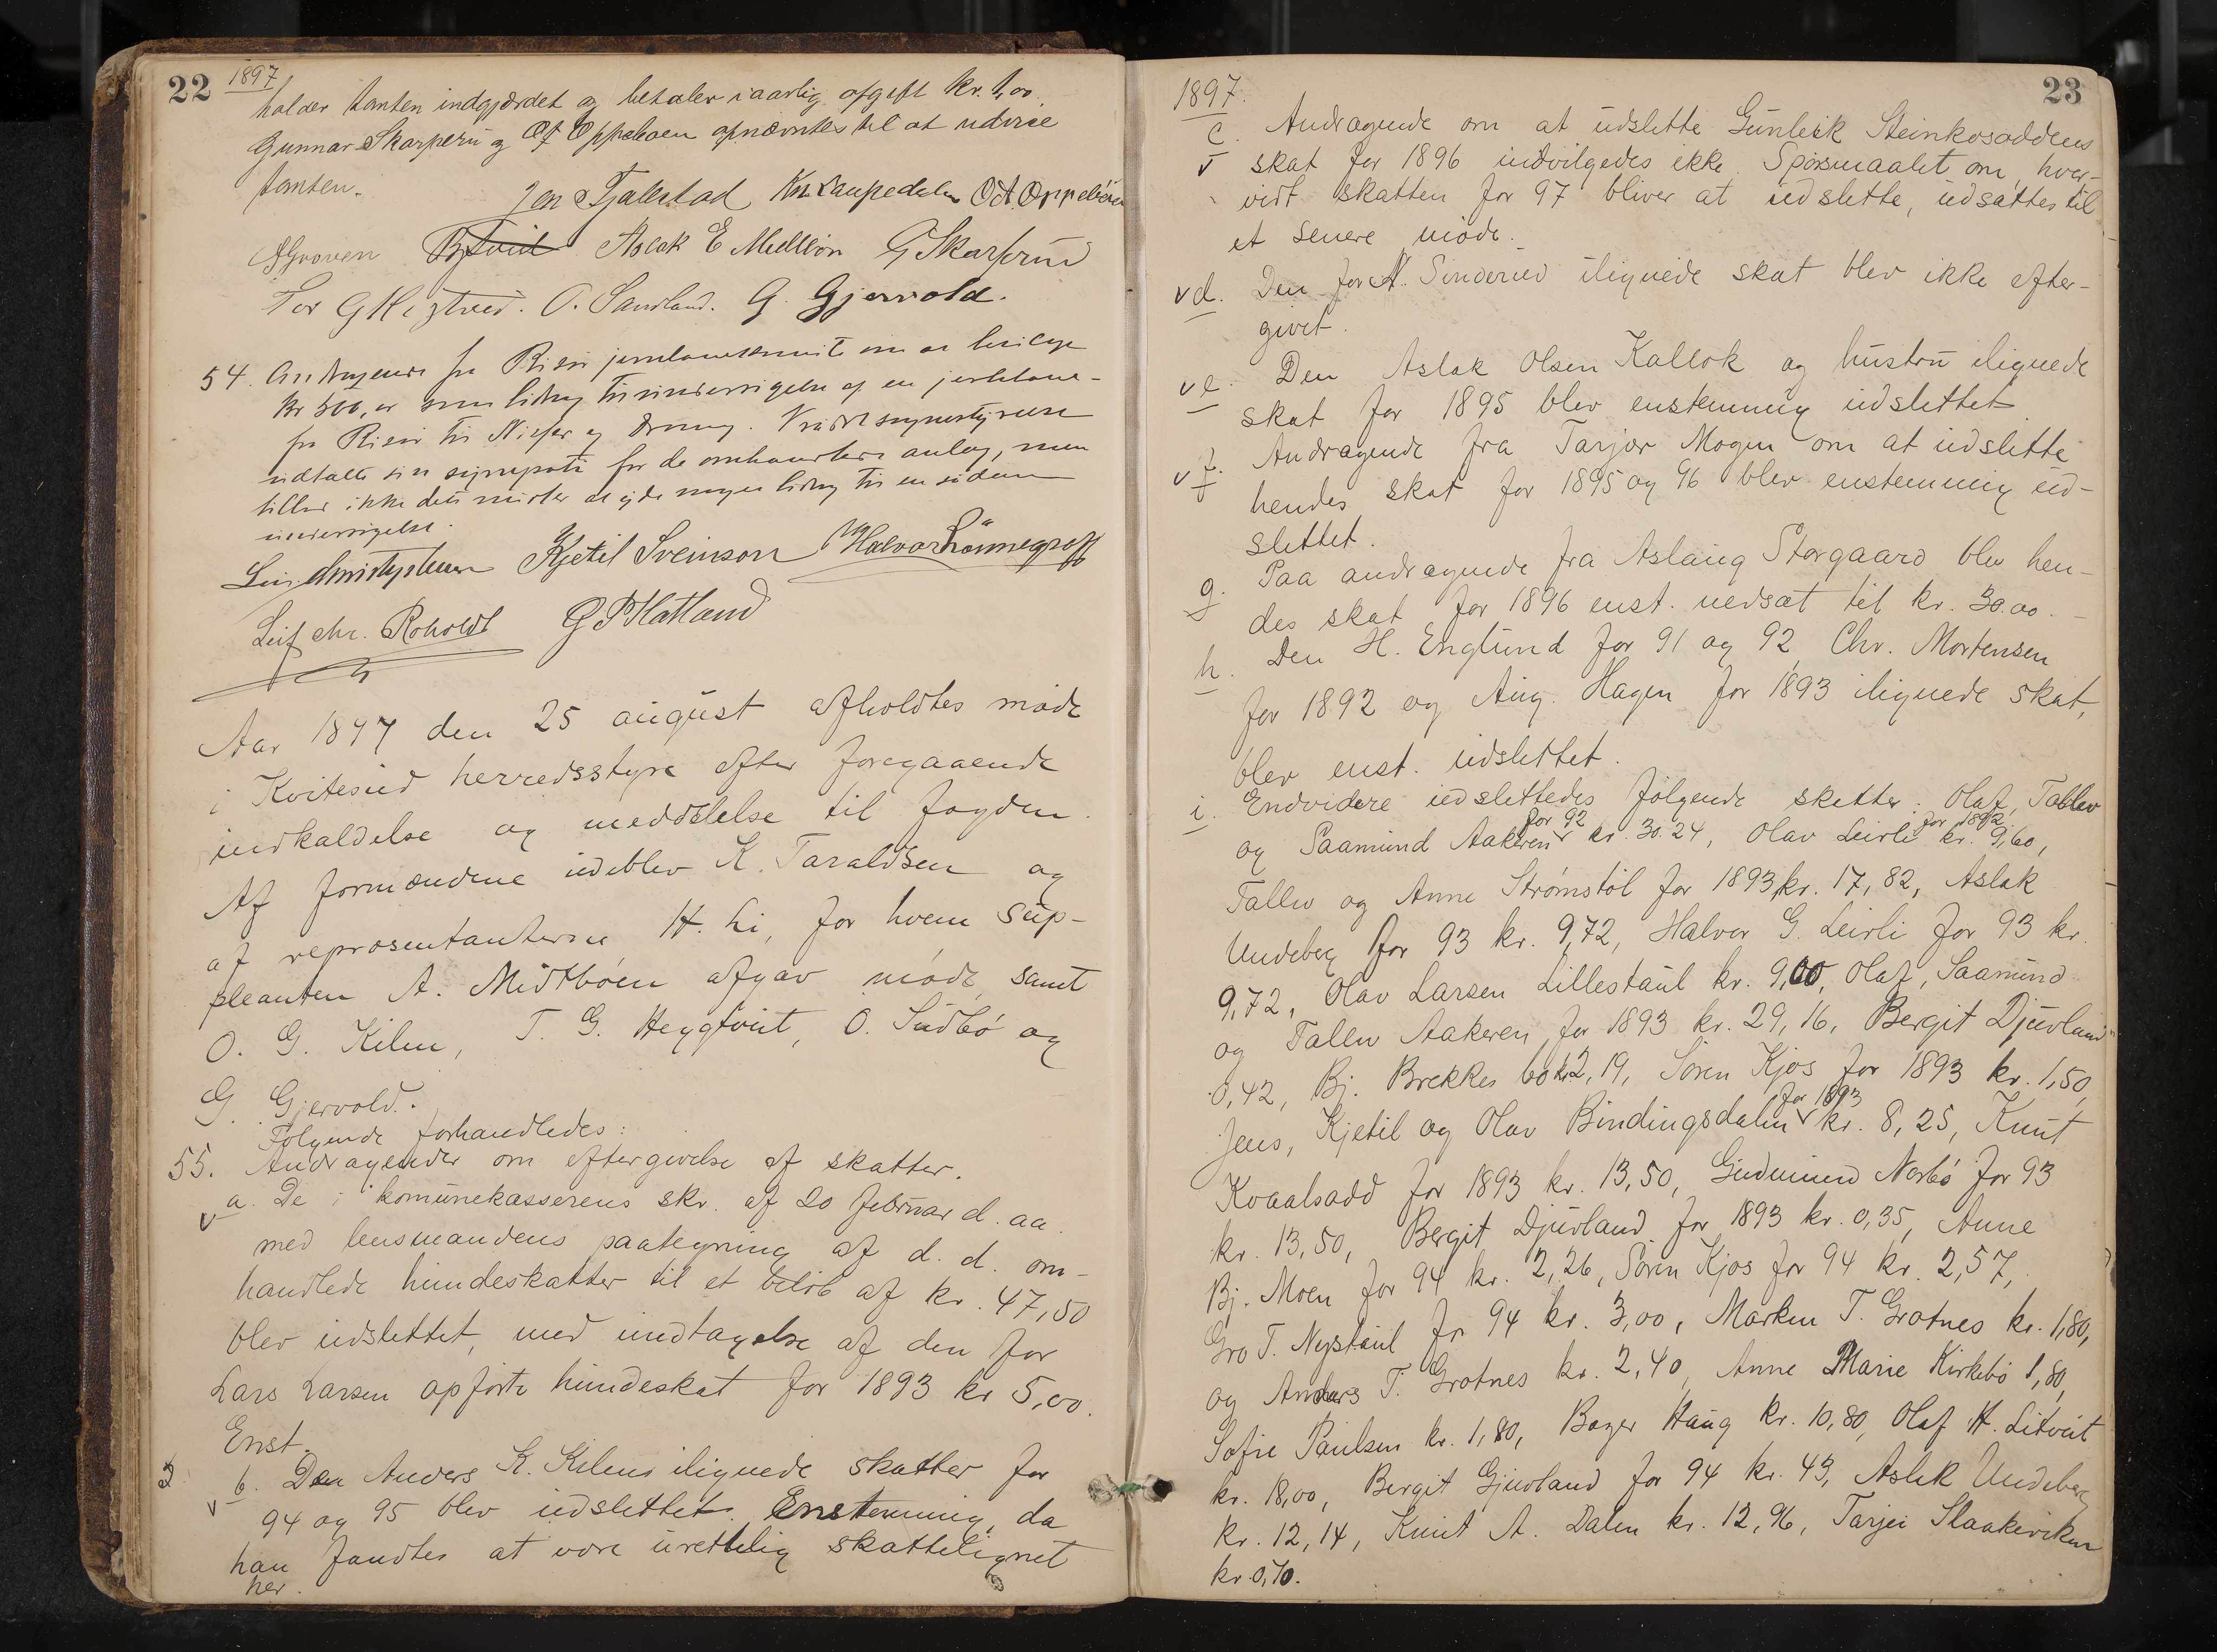 22 1897
holder tomten indgjærdet og betaler i aarlig afgift kr. 1,00.
Gunnar Skarperu og Of Oppeboen opnævntes til at udvise
tomten.
Jon Tjalstad Kn Laupedalen O A Oppeboen
Groven Aslak E Midtbøn G Skarprud
Tor G O. Sandland. G. Gjervold.
54. Andragende fra Risør jernbanekomite om at bevilge
kr 300, er som bidrag til undersøgelse af en jernbane-
fra Risør til Nisser og Herredsstyrelsen
udtalte sin sympati for de omhandlede anlæg, men
ikke at yde nogen bidrag til en sådan
undersøgelse.
Kjetil Sveinson Halvor Lønnegraff
Leif Chr. Roholdt G P Hatland
Aar 1897 den 25 august afholdtes møde
i Kvitesed herredsstyre efter foregaaende
indkaldelse og meddelelse til fogden.
Af formændene udeblev K. Taraldsen og
af repræsentanterne H. Li, for hvem sup-
pleanten A. Midtbøen afgav møde, samt
O. G. Kilen, T. G. Heggtveit, O. Sudbø og
G Gjervold.
Følgende forhandledes:
55. Andragender om eftergivelse af skatter.
a. De i komunekasserens skr. af 20 februar d. aa.
v med lensmandens paategning af d. d. om-
handlede hundeskatter til et beløb af kr. 47,50
blev udslettet, med undtagelse af den for
Lars Larsen opførte hundeskat for 1893 kr 5,00.
Enst.
b. Den Anders K. Kilens ilignede skatter for
v 94 og 95 blev udslettet. Enstemmig, da
han fandtes at være urettelig skattelignet
her.
23
1897.
c. Andragende om at udslette Gunleik Steinkosaddens
v skat for 1896 indvilgedes ikke. Spørsmaalet om, hvor-
vidt skatten for 97 bliver at udslette, udsættes til
et senere møde.
v d. Den for A. Sinderud ilignede skat blev ikke efter-
givet.
v e. Den Aslak Olsen Kallok og hustru ilignede
skat for 1895 blev enstemmig udslettet
v f. Andragende fra Tarjer Mogen om at udslette
hendes skat for 1895 og 96 blev enstemmig ud-
slettet.
g. Paa andragende fra Aslaug Storgaard blev hen-
des skat for 1896 enst. nedsat til kr. 30.00.-
h. Den H. Englund for 91 og 92, Chr. Mortensen
for 1892 og Aug. Hagen for 1893 ilignede skat,
blev enst. udslettet.
i. Endvidere udslettedes følgende skatter: Olaf, Tallev
og Saamund Aakeren for 92 kr. 30.24, Olav Leirli for 1892 kr. 9,60,
Tallev og Anne Strømstøl for 1893 kr. 17,82, Aslak
Undeberg for 93 kr. 9,72, Halvor G. Leirli for 93 kr.
9,72, Olav Larsen Lillestaul kr. 9,00, Olaf, Saamund
og Tallev Aakeren for 1893 kr. 29,16, Bergit Djuvland
0,42, Bj. Brekkes bo kr 2,19, Søren Kjos for 1893 kr. 1,50,
Jens, Kjetil og Olav Bindingsdalen for 1893 kr. 8,25, Knut
Kvaalsodd for 1893 kr. 13,50, Gudmund Norbø for 93
kr. 13,50, Bergit Djuvland for 1893 kr. 0,35, Anne
Bj. Moen for 94 kr. 2,26, Søren Kjos for 94 kr. 2,57,
Gro T. Nystaul for 94 kr. 3,00, Marken T. Grotnes kr. 1,80,
og Anders T. Grotnes kr. 2,40, Anne Marie Kirkebø 1,80,
Sofie Paulsen kr. 1,80, Borger Haug kr. 10,80, Olaf H. Litveit
kr. 18,00, Bergit Gjuvland for 94 kr. 43, Aslak Undeberg
kr. 12,14, Knut A. Dalen kr. 12,96, Tarjei Slaakeviken
kr. 0,70.